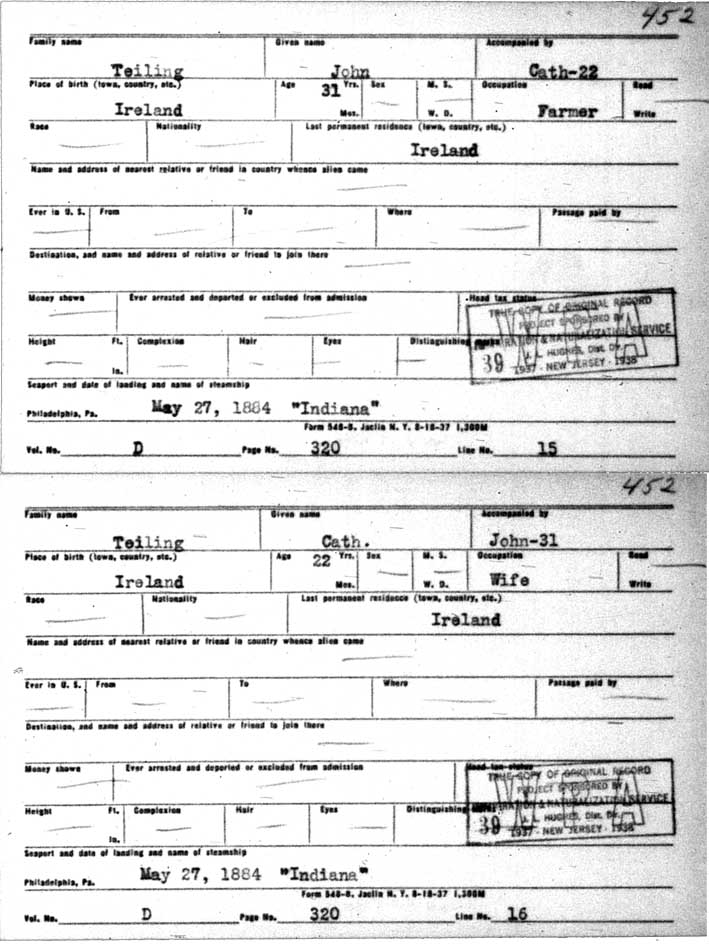 452
Family name Given name Accompanied by
Teiling John Cath-22
Place of birth (town, country, etc.) Age 31 Yrs. Sex M. S. Occupation Read
Ireland Mos. W. D. Farmer Write
Race Nationality Last permanent residence (town, country, etc.)
Ireland
Name and address of nearest relative or friend in country whence alien came
Ever in U. S. From To Where Passage paid by
Destination, and name and address of relative or friend to join there
Money shown Ever arrested and deported or excluded from admission Head tax status
Height Ft. Complexion Hair Eyes Distinguishing marks
In.
TRUE COPY OF ORIGINAL RECORD
PROJECT SPONSORED BY
IMMIGRATION & NATURALIZATION SERVICE
39 HUGHES, Dist. Dir.
1937 - NEW JERSEY - 1938
Seaport and date of landing and name of steamship
Philadelphia, Pa. May 27, 1884 "Indiana"
Form 548-B. Jaclin N. Y. 8-18-37 1,300M
Vol. No. D Page No. 320 Line No. 15
452
Family name Given name Accompanied by
Teiling Cath. John-31
Place of birth (town, country, etc.) Age 22 Yrs. Sex M. S. Occupation Read
Ireland Mos. W. D. Wife Write
Race Nationality Last permanent residence (town, country, etc.)
Ireland
Name and address of nearest relative or friend in country whence alien came
Ever in U. S. From To Where Passage paid by
Destination, and name and address of relative or friend to join there
Money shown Ever arrested and deported or excluded from admission Head tax status
Height Ft. Complexion Hair Eyes Distinguishing
In.
TRUE COPY OF ORIGINAL RECORD
PROJECT SPONSORED BY
IMMIGRATION & NATURALIZATION SERVICE
39 HUGHES, Dist. Dir.
1937 - NEW JERSEY - 1938
Seaport and date of landing and name of steamship
Philadelphia, Pa. May 27, 1884 "Indiana"
Form 548-B. Jaclin N. Y. 8-18-37 1,300M
Vol. No. D Page No. 320 Line No. 16